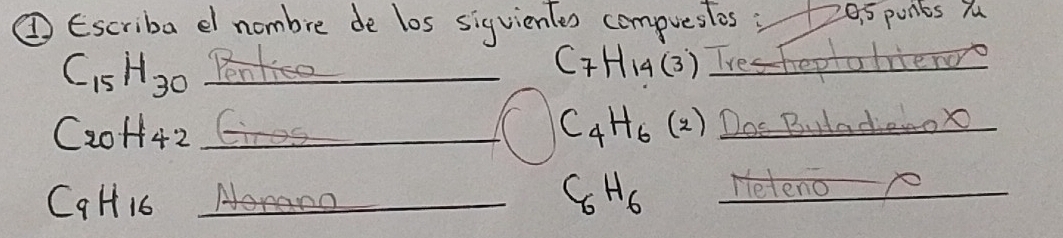 ① Escriba el nombre de los siguientes compuestos: 0,5 puntos
C15H30 Pentico C7H14(3) Tres heptatrieno
C20H42 C4H6 (2) Dos Butadieno
C9H16 Nonano C6H6 Meteno